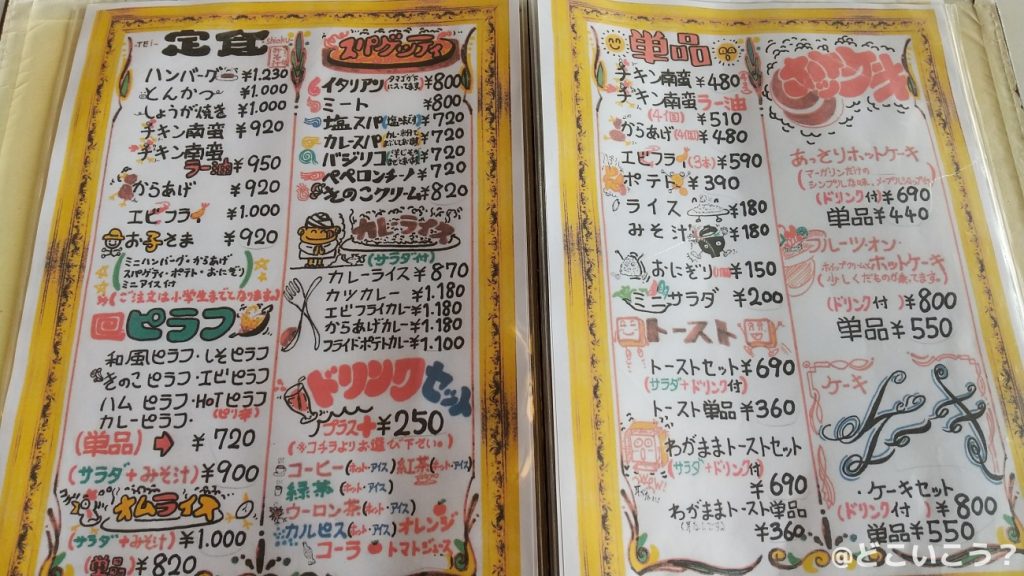 定食
ハンバーグ ¥1.230
とんかつ ¥1.000
しょうが焼き ¥1.000
チキン南蛮 ¥920
チキン南蛮
ラー油 ¥950
からあげ ¥920
エビフライ ¥1.000
お子さま ¥920
ミニハンバーグ・からあげ
スパゲティ・ポテト・おにぎり
ミニアイス付
ご注文は小学生までとなります
ピラフ
和風ピラフ・しそピラフ
きのこピラフ・エビピラフ
ハムピラフ・HOTピラフ
カレーピラフ・(ピリ辛)
(単品) → ¥720
(サラダ+みそ汁) ¥900
オムライス
(サラダ+みそ汁) ¥1.000
(単品) ¥820
スパゲッティ
イタリアン ¥800
ミート ¥800
塩スパ(塩味) ¥720
カレースパ ¥720
バジリコ ¥720
ペペロンチーノ ¥720
きのこクリーム ¥820
カレーライス
(サラダ付)
カレーライス ¥870
カツカレー ¥1.180
エビフライカレー ¥1.180
からあげカレー ¥1.180
フライドポテトカレー ¥1.100
ドリンクセット
プラス+¥250
(※コチラよりお選び下さい。)
コーヒー(ホット・アイス) 紅茶(ホット・アイス)
緑茶(ホット・アイス)
ウーロン茶(ホット・アイス)
カルピス(ホット・アイス) オレンジ
コーラ トマトジュース
単品
チキン南蛮 ¥480
チキン南蛮ラー油
(4個) ¥510
からあげ(4個) ¥480
エビフライ(3本) ¥590
ポテト ¥390
ライス ¥180
みそ汁 ¥180
おにぎり ¥150
ミニサラダ ¥200
トースト
トーストセット ¥690
(サラダ+ドリンク付)
トースト単品 ¥360
わがままトーストセット
(サラダ+ドリンク付)
¥690
わがままトースト単品
¥360
ホットケーキ
あっさりホットケーキ
マーガリンだけの
(ドリンク付) ¥690
単品 ¥440
フルーツ・オン・
ホットケーキ
(ドリンク付) ¥800
単品 ¥550
ケーキ
・ケーキセット
(ドリンク付) ¥800
単品 ¥550
@どこいこう?